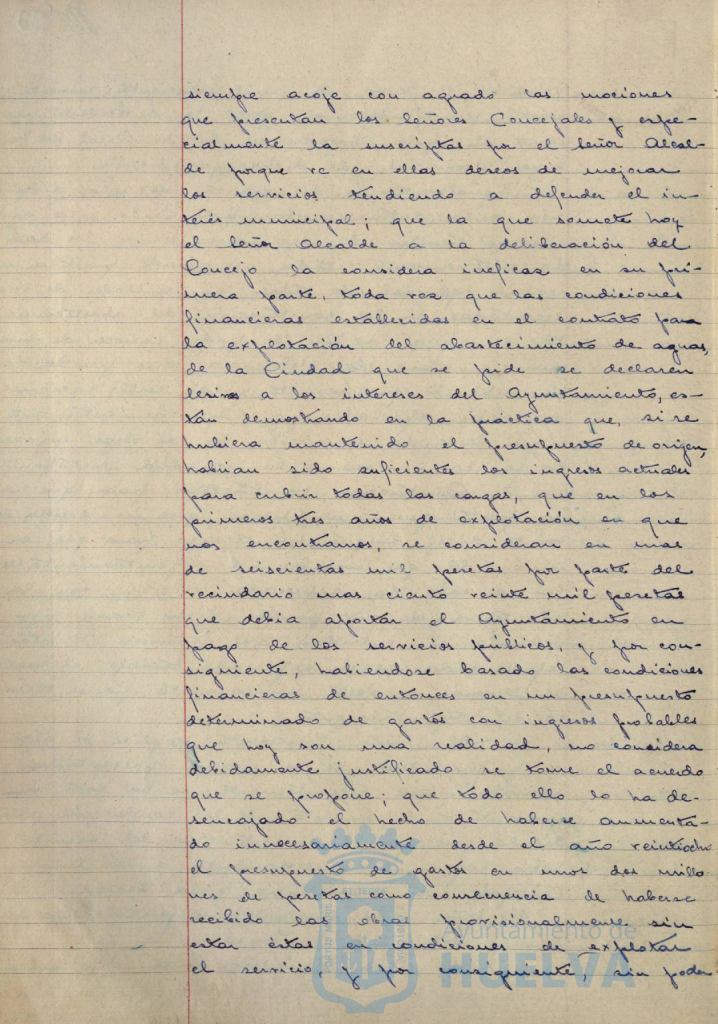 siempre acoje con agrado las mociones
que presentan los Señores Concejales y espe-
cialmente la suscriptas por el Señor Alcal-
de porque ve en ellas deseos de mejorar
los servicios tendiendo a defender el in-
terés municipal; que la que somete hoy
el Señor Alcalde a la deliberación del
Concejo la considera ineficaz en su pri-
mera parte, toda vez que las condiciones
financieras establecidas en el contrato para
la explotación del abastecimiento de aguas,
de la Ciudad que se pide se declaren
lesivas a los intereses del Ayuntamiento, es-
tán demostrando en la práctica que, si se
hubiera mantenido el presupuesto de origen,
habrian sido suficientes los ingresos actuales
para cubrir todas las cargas, que en los
primeros tres años de explotación en que
nos encontramos, se consideran en mas
de seiscientas mil pesetas por parte del
vecindario mas ciento veinte mil pesetas
que debia aportar el Ayuntamiento en
pago de los servicios públicos, y por con-
siguiente, habiendose basado las condiciones
financieras de entonces en un presupuesto
determinado de gastos con ingresos probables
que hoy son una realidad, no considera
debidamente justificado se tome el acuerdo
que se propone; que todo ello lo ha de-
sencajado el hecho de haberse aumenta-
do innecesariamente desde el año veintiocho
el presupuesto de gastos en unos dos millo
nes de pesetas como consecuencia de haberse
recibido las obras provisionalmente sin
estar éstas en condiciones de explotar
el servicio, y por consiguiente, sin poder
Ayuntamiento de
HUELVA